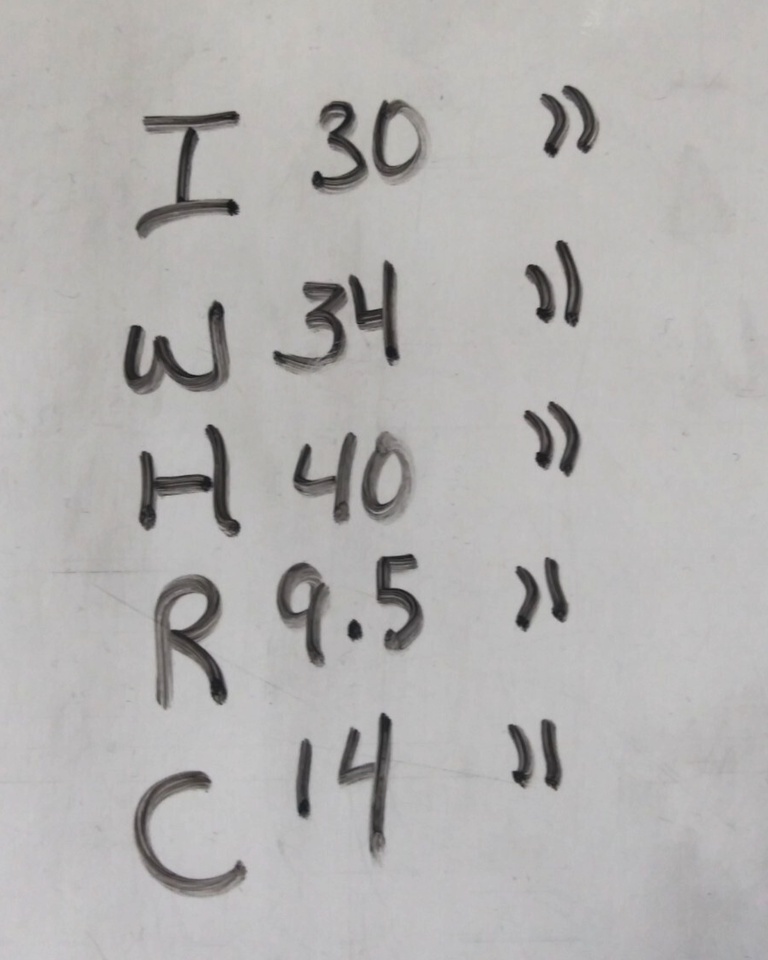 I 30 "
W 34 "
H 40 "
R 9.5 "
C 14 "